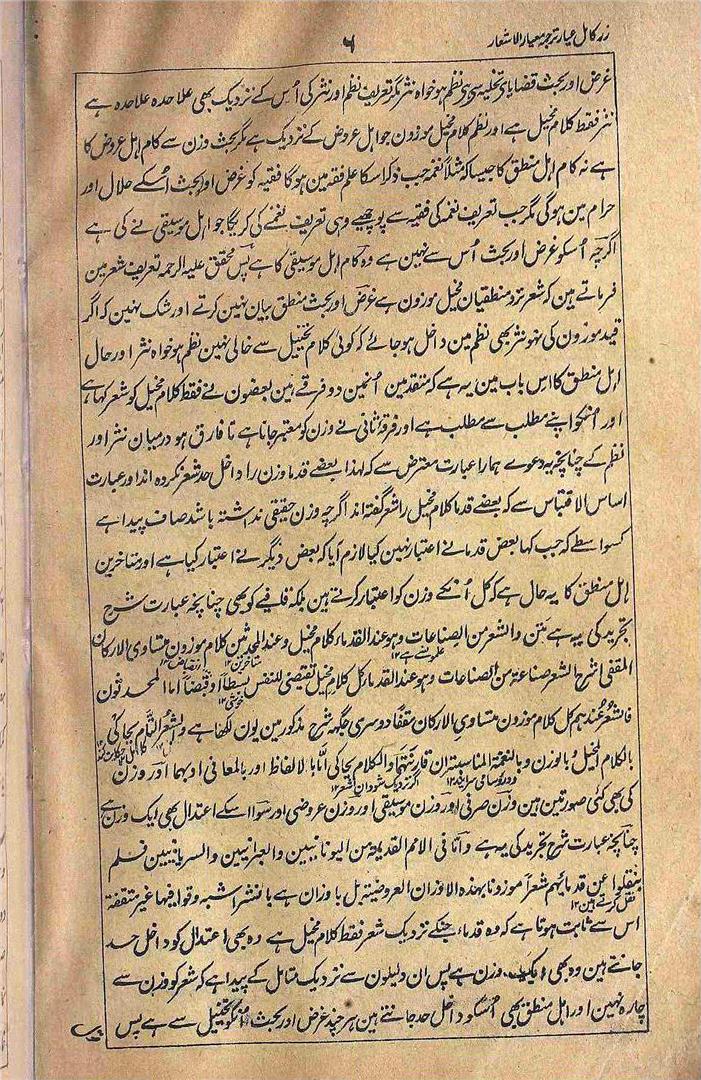 زر کامل عیار ترجمہ معیار الاشعار
۶
غرض اور بحث قضایای تخئیلیہ سی ہی نظم ہو خواہ نثر مگر تعریف نظم اور نثر کی اُس کے نزدیک بھی علاحدہ علاحدہ ہے
نثر فقط کلام مخیل ہے اور نظم کلام مخیل موزون جو اہل عروض کے نزدیک ہے مگر بحث وزن سے کام اہل عروض کا
ہے نہ کام اہل منطق کا جیسا کہ مثلاً نغمہ جب ذکر اسکا علم فقہ مین ہو گا فقیہ کو غرض اور بحث اُسکے حلال اور
حرام مین ہو گی مگر جب تعریف نغمہ کی فقیہ سے پوچھیے وہی تعریف نغمے کی کریگا جو اہل موسیقی نے کی ہے
اگرچہ اُسکو غرض اور بحث اُس سے نہین ہے وہ کام اہل موسیقی کا ہے پس محقق علیہ الرحمہ تعریف شعر مین
فرماتے ہین کہ شعر نزد منطقیان مخیل موزون ہے غرض اور بحث منطق بیان نہین کرتے اور شک نہین کہ اگر
قید موزون کی نہو نثر بھی نظم مین داخل ہو جائے کہ کوئی کلام تخئیل سے خالی نہین نظم ہو خواہ نثر اور حال
اہل منطق کا اس باب مین یہ ہے کہ متقدمین اُنہین دو فرقے ہین بعضون نے فقط کلام مخیل کو شعر کہا ہے
اور اُنکو اپنے مطلب سے مطلب ہے اور فرقۂ ثانی نے وزن کو معتبر جانا ہے تا فارق ہو درمیان نثر اور
نظم کے چنانچہ یہ دعوے ہمارا عبارت معترض سے کہ لہذا بعضے قدما وزن را داخل حد شعر نکردہ اند اور عبارت
اساس الاقتباس سے کہ بعضے قدما کلام مخیل را شعر گفتہ اند اگرچہ وزن حقیقی نداشتہ باشد صاف پیدا ہے
کسواسطے کہ جب کہا بعض قدما نے اعتبار نہین کیا لازم آیا کہ بعض دیگر نے اعتبار کیا ہے اور متاخرین
اہل منطق کا یہ حال ہے کہ کل اُنکے وزن کو اعتبار کرتے ہین بلکہ قافیے کو بھی چنانچہ عبارت شرح
تجرید کی یہ ہے متن والشعر من الصناعات وھو عند القدماء کلام مخیل وعند المحدثین کلام موزون متساوی الارکان
المقفی اشرح الشعر صناعۃ من الصناعات وھو عند القدماء کل کلام مخیل تقتضی للنفس بسطاً او قبضاً اما المحدثون
فالشعر عندہم کل کلام موزون متساوی الارکان مقفا دوسری جگہہ شرح مذکور مین یون لکھا ہے والشعر التام یحاکی
بالکلام المخیل وبالوزن وبالنغمۃ المناسبۃ ان قارنتہا والکلام یحاکی اما بالالفاظ اور بالمعانی او بہما اور وزن
کی بھی کئی صورتین ہین وزن صرفی اور وزن موسیقی اور وزن عروضی اور سوا اسکے اعتدال بھی ایک وزن ہے
چنانچہ عبارت شرح تجرید کی یہ ہے واما فی الامم القدیمۃ من الیونانیین والعبرانیین والسریانیین فلم
ینقلوا عن قدمائہم شعراً موزونا بہذہ الاوزان العروضیۃ بل باوزان ہے بالنثر اشبہ وقوافیہا غیر متفقۃ
اس سے ثابت ہوتا ہے کہ وہ قدماء جنکے نزدیک شعر فقط کلام مخیل ہے وہ بھی اعتدال کو داخل حد
جانتے ہین وہ بھی ایک وزن ہے پس ان دلیلون سے نزدیک متامل کے پیدا ہے کہ شعر کو وزن سے
چارہ نہین اور اہل منطق بھی اُسکو داخل حد جانتے ہین ہر چند غرض اور بحث اُنکو تخئیل سے ہے پس